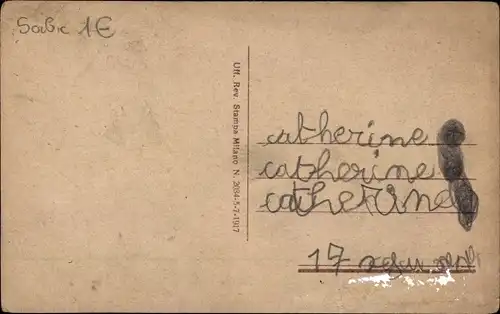 1€
Uff. Rev. Stampa Milano N. 2034-5-7-1917
catherine
catherine
catherine
17